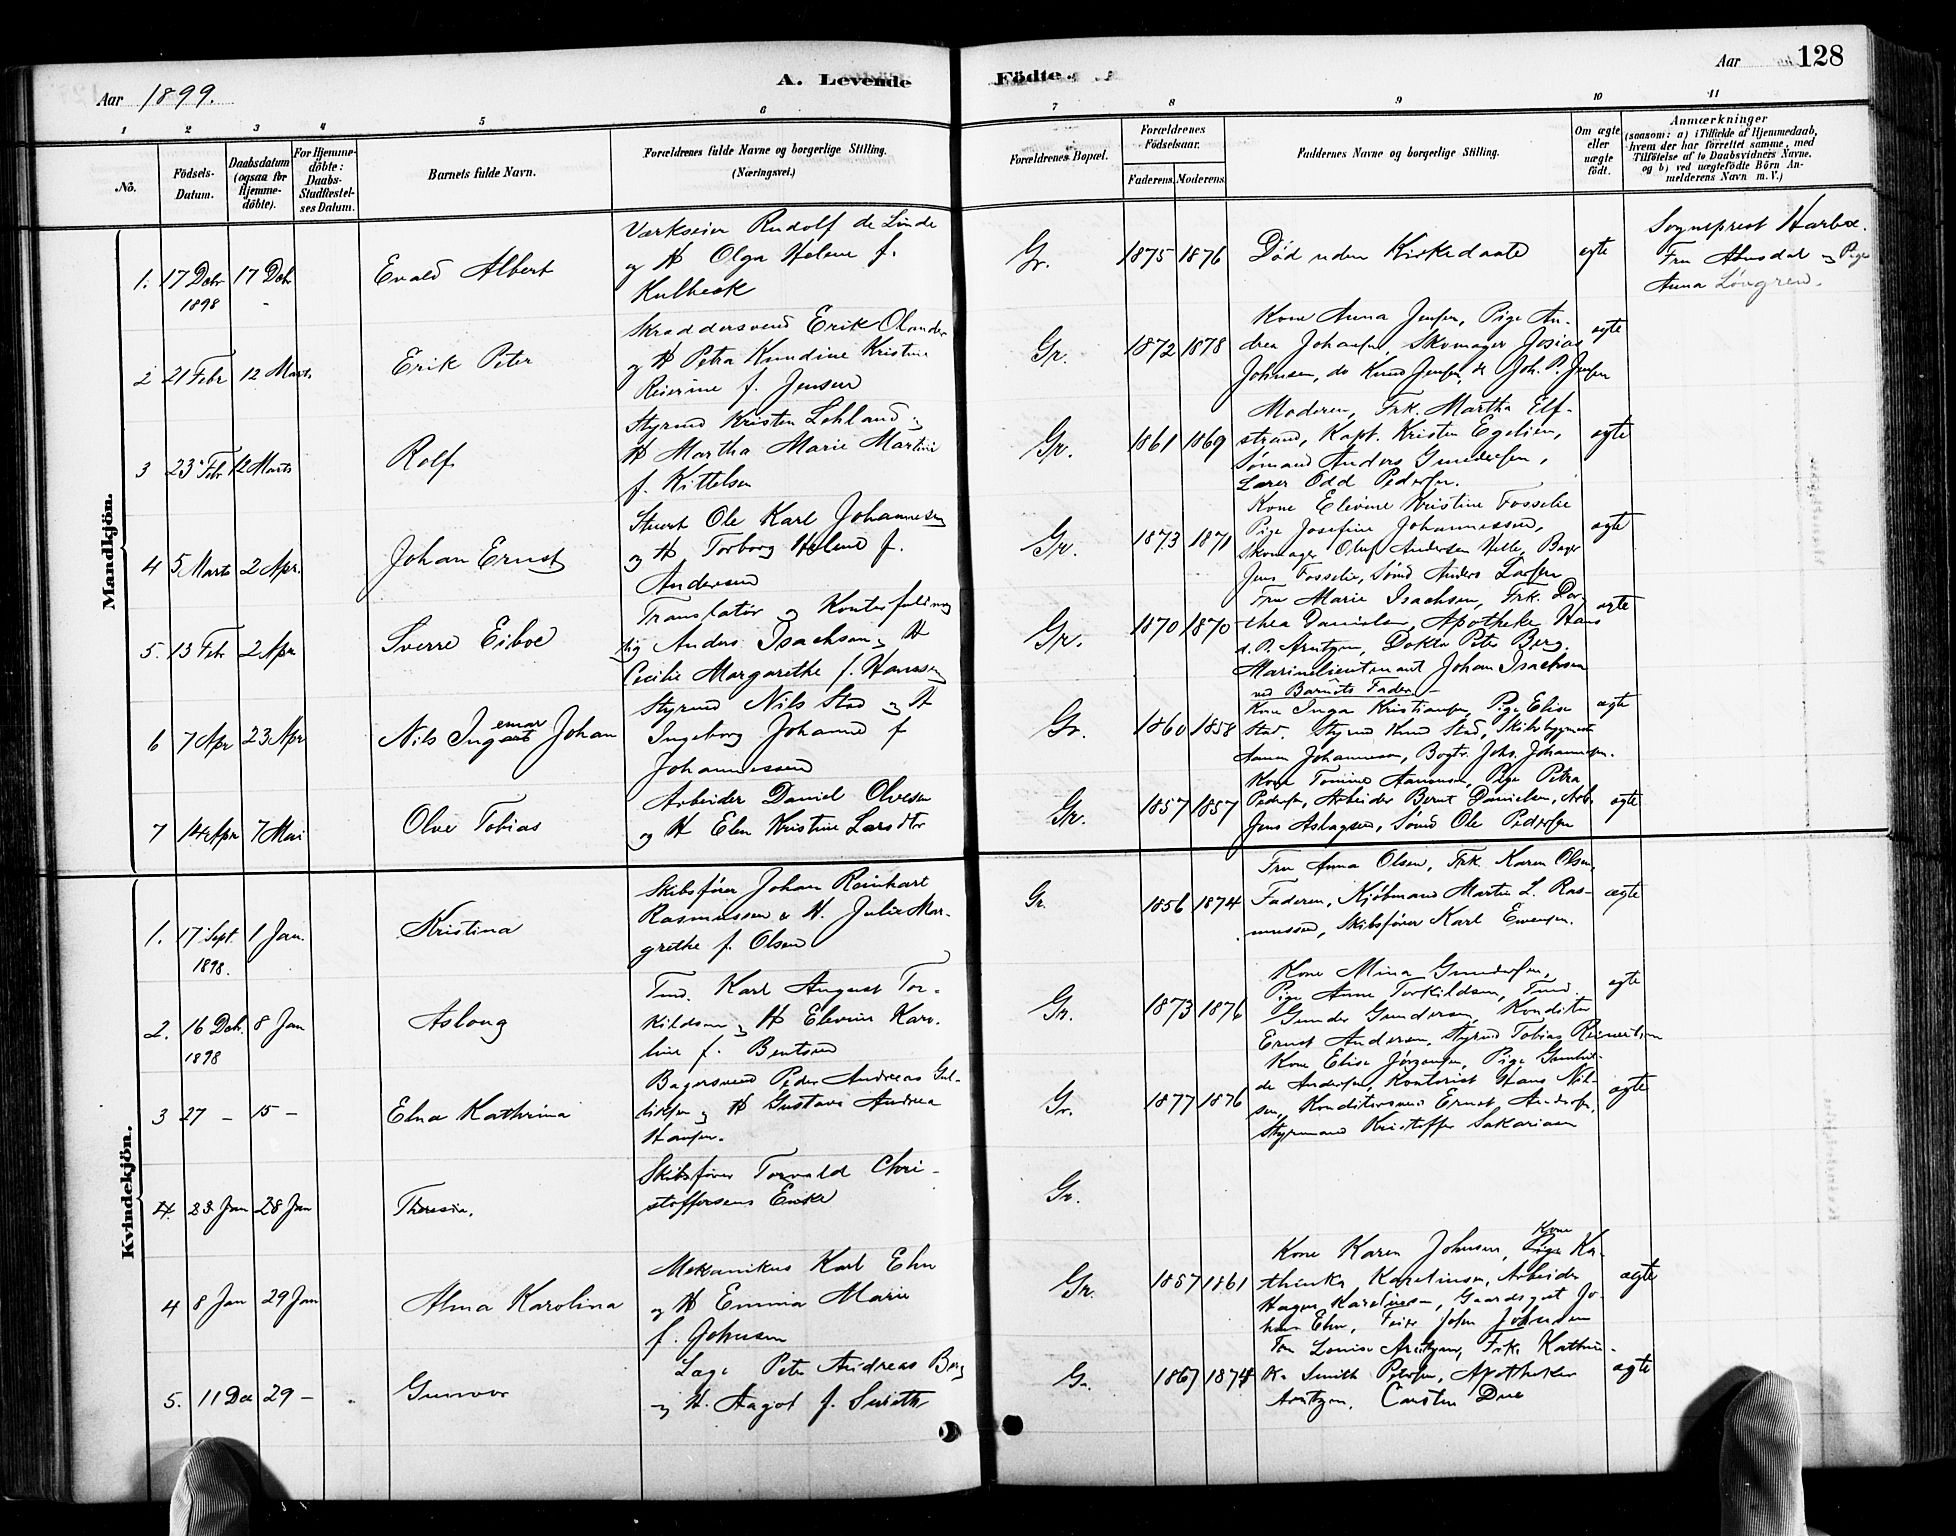 Aar 1899.
A. Levende
Födte.
Aar 128
1 2 3 4 5 6 7 8 9 10 11
No.
Födsels-
Datum.
Daabsdatum
(ogsaa for
Hjemme-
döbte).
For Hjemme-
döbte:
Daabs-
Stadfæstel-
ses Datum.
Barnets fulde Navn.
Forældrenes fulde Navne og borgerlige Stilling.
(Næringsvei.)
Forældrenes Bopæl.
Forældrenes
Födselsaar.
Faderens. Moderens.
Faddernes Navne og borgerlige Stilling.
Om ægte
eller
uægte
født.
Anmærkninger
(saasom: a) i Tilfælde af Hjemmedaab,
hvem der har forrettet samme, med
Tilföielse af to Daabsvidners Navne,
og b) ved uægtefödte Börn An-
melderens Navn m. V.)
Mandkjön.
1. 17 Debr 1898 17 Debr
Evald Albert
Værkseier Rudolf de Linde
og H Olga Helene f.
Kulbeck
Gr. 1875 1876
Död uden Kirkedaab
egte
Sogneprest Harboe.
Fru og Pige
Anna Löngren.
2 21 Febr 12 Marts
Erik Peter
Skræddersvend Erik Olander
og H Petra Kundine Kristine
Reierine f. Jensen
Gr. 1872 1878
Kone Anna Jensen, Pige An-
drea Johansen, Skomager Josias
Johnsen, do Knud Jensen, do Joh. P. Jensen
egte
3 23 Febr 12 Marts
Rolf
Styrmd Kristen Lohland og
H Martha Marie Martine
f. Kittelsen
Gr. 1861 1869
Moderen, Frk. Martha Elf-
strand, Kapt. Kristen Egelien,
Sømand Anders Gundersen,
Lærer Odd Pedersen.
egte
4 5 Marts 2 Apr.
Johan Ernst
Stuert Ole Karl Johannesen
og H Torborg Helene f.
Andersen
Gr. 1873 1871
Kone Elevine Kristine Fosselie
Pige Josefine Johannessen,
Skomager Oluf Andersen Helle, Bager
Jens Fosselie, Sömd Anders Larsen
egte
5. 13 Febr 2 Apr
Sverre Eiboe
Translatør og Kontorfuldmæg
tig Anders Isachsen og H
Cecilie Margarethe f. Hanssen
Gr. 1870 1870
Fru Marie Isachsen, Frk. Dor-
thea Danielsen, Apotheker Hans
A. P. Arntzen, Doktor Peter Berg.
Marinelieutenant Johan Isachsen
ved Barnets Fader
egte
6 7 Apr 23 Apr
Nils Ingemar Johan
Styrmd Nils Stad og H
Ingeborg Johanne f
Johannessen
Gr. 1860 1858
Kone Inga Kristiansen, Pige Elise
Stad. Styrmd Knud Stad, Skibsbygmester
Aamon Johannesen, Bogtr. Johs. Johannesen.
egte
7 14 Apr 7 Mai
Olve Tobias
Arbeider Daniel Olvesen
og H Elen Kristine Larsdtr
Gr. 1857 1857
Kone Tomine Aanonsen, Pige Petra
Pedersen, Arbeider Bernt Danielsen, Arb.
Jens Aslagsen, Sömd Ole Pedersen
egte
Kvindekjön.
1. 17 Sept. 1898. 1 Jan.
Kristina
Skibsfører Johan Reinhart
Rasmussen & H. Julie Mar-
grethe f. Olsen
Gr. 1856 1874
Fru Anna Olsen, Frk. Karen Olsen,
Faderen, Kjöbmand Martin L. Ras-
mussen, Skibsfører Karl Evensen.
ægte
2. 16 Debr. 1898 8 Jan
Aslaug
Tmd. Karl August Tor-
kildsen og H Elevine Karo-
line f. Bentsen
Gr. 1873 1876
Kone Mina Gundersen,
Pige Anne Torkildsen, Tmd.
Gunder Gundersen, Konditor
Ernst Andersen, Styrmd Tobias Reinertsen
egte
3 27 – 15 –
Elna Kathrina
Bagersvend Peder Andreas Gul-
liksen og H Gustava Andrea
Hansen.
Gr. 1877 1876
Kone Elise Jørgensen, Pige Gunhil-
de Andersen, Kontorist Hans Nil-
sen, Konditorsvend Ernst Andersen,
Styrmand Kristoffer Sakariasen
egte
4. 23 Jan 28 Jan
Theresia.
Skibsfører Torvald Chri-
stoffersens Enke
Gr.
4 8 Jan 29 Jan
Alma Karolina
Mekanikus Karl Ehn
og H Emma Marie
f. Johnsen
Gr. 1857 1861
Kone Karen Johnsen, Kone Ka-
thinka Karelinsen, Arbeider
Hagen Karelinsen, Gaardsgut Jo-
han Ehn, Feier John Johnsen
ægte
5. 11 De 29 –
Gunvor
Læge Peter Andreas Berg
og H. Aagot f. Smith
Gr. 1867 1874
Fru Louise Arntzen, Frk. Kathrin-
ka Smith Petersen, Apotheker
Arntzen, Carsten Due
ægte